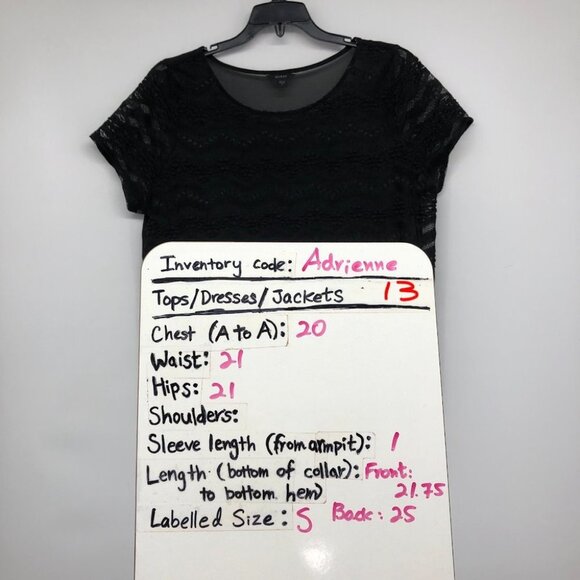 Inventory code: Adrienne
Tops/Dresses/Jackets 13
Chest (A to A): 20
Waist: 21
Hips: 21
Shoulders:
Sleeve length (from armpit): 1
Length (bottom of collar): Front:
to bottom hem) 21.75
Labelled Size: S Back: 25